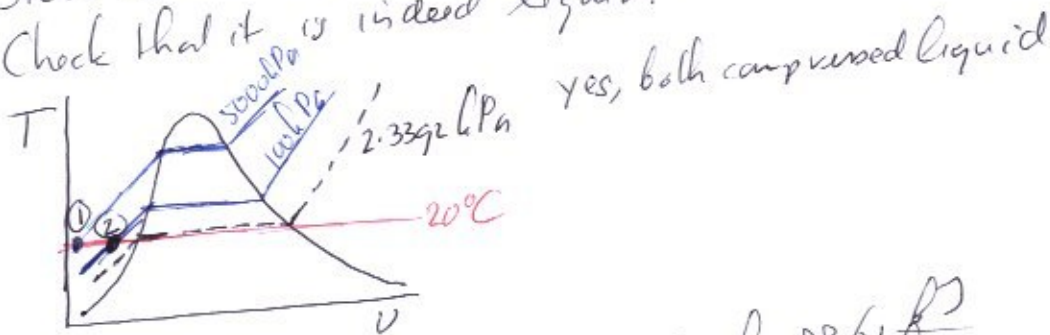 Check that it is indeed
5000kPa
yes, both compressed liquid
T
100kPa
2.3392 kPa
20°C
1
2
υ